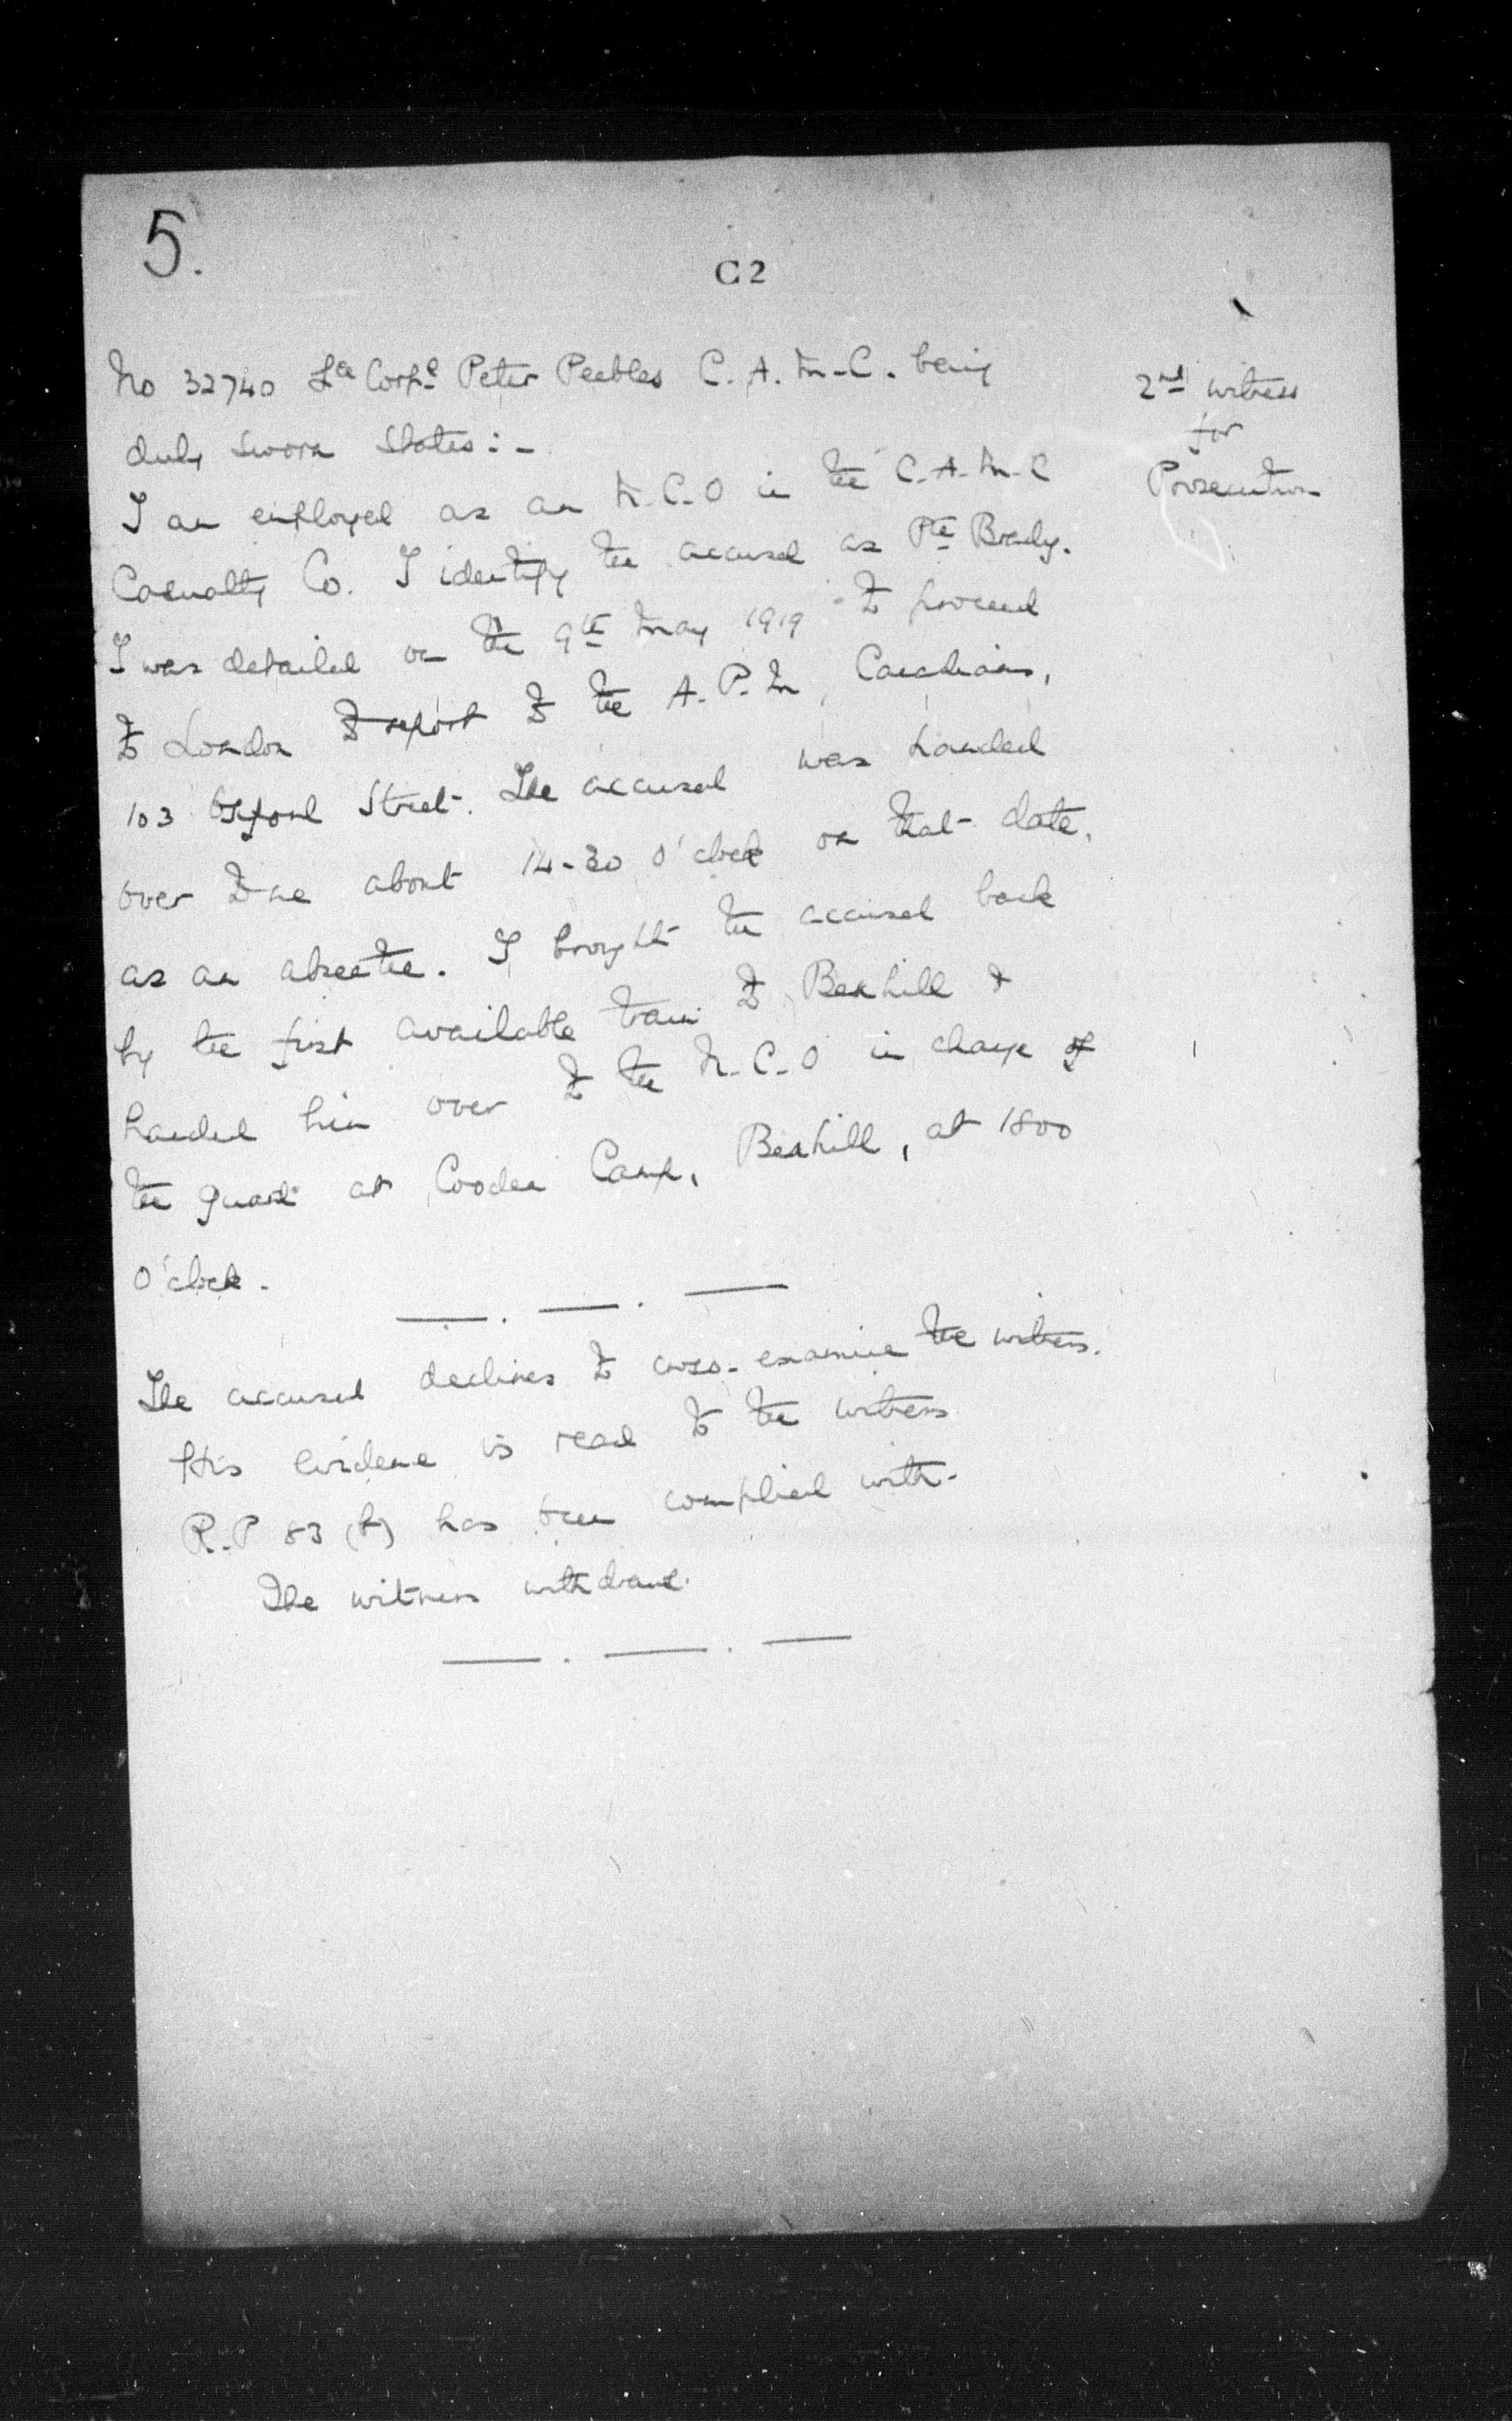 5.
C2
No 32740 Lce Corpl Peter Peebles C.A.M.C. being
duly sworn states:-
2nd witness
for
Prosecution
I am employed as an N.C.O in the C.A.M.C
Casualty Co. I identify the accused as Pte Brady.
I was detailed on the 9th May 1919 to proceed
to London to report to the A.P.M, Canadians,
103 Oxford Street. The accused was handed
over to me about 14-30 o'clock on that date,
as an absentee. I brought the accused back
by the first available train to Bexhill &
handed him over to the N.C.O in charge of
the guard at Cooden Camp, Bexhill, at 1800
O'clock.
The accused declines to cross-examine the witness.
His evidence is read to the witness
R.P 83 (B) has been complied with.
The witness withdraws.